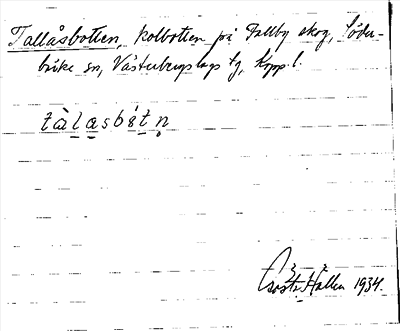 Tallåsbotten, kolbotten på Dalby skog, Söder-
bärke sn, Västerbergslags tg, Kopp. l.
tàlasbòtn
Gösta Hallén 1934.